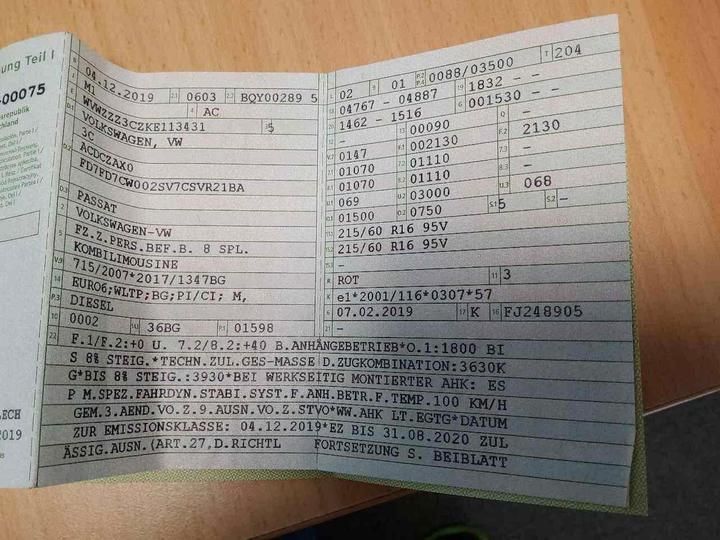 ung Teil I
-00075
srepublik
chland
B 04.12.2019 2.1 0603 2.2 BQY00289 5
J M1 4 AC
E WVWZZZ3CZKE113431 3 5
D.1 VOLKSWAGEN, VW
3C
D.2 ACDCZAX0
FD7FD7CW002SV7CSVR21BA
D.3 PASSAT
2 VOLKSWAGEN-VW
5 FZ.Z.PERS.BEF.B. 8 SPL.
KOMBILIMOUSINE
V.9 715/2007*2017/1347BG
14 EURO6;WLTP;BG;PI/CI; M,
P.3 DIESEL
10 0002 14.1 36BG P.1 01598
L 02 9 01 P.2 P.4 0088/03500 T 204
18 04767 - 04887 19 1832 - -
20 1462 - 1516 G 001530 - -
12 - 13 00090 Q -
V.7 0147 F.1 002130 F.2 2130
7.1 01070 7.2 01110 7.3 -
8.1 01070 8.2 01110 8.3 -
U.1 069 U.2 03000 U.3 068
O.1 01500 O.2 0750 S.1 5 S.2 -
15.1 215/60 R16 95V
15.2 215/60 R16 95V
15.3 -
R ROT 11 3
K e1*2001/116*0307*57
6 07.02.2019 17 K 16 FJ248905
21 -
22 F.1/F.2:+0 U. 7.2/8.2:+40 B.ANHÄNGEBETRIEB*O.1:1800 BI
S 8% STEIG.*TECHN.ZUL.GES-MASSE D.ZUGKOMBINATION:3630K
G*BIS 8% STEIG.:3930*BEI WERKSEITIG MONTIERTER AHK: ES
P M.SPEZ.FAHRDYN.STABI.SYST.F.ANH.BETR.F.TEMP.100 KM/H
GEM.3.AEND.VO.Z.9.AUSN.VO.Z.STVO*WW.AHK LT.EGTG*DATUM
ZUR EMISSIONSKLASSE: 04.12.2019*EZ BIS 31.08.2020 ZUL
ÄSSIG.AUSN.(ART.27,D.RICHTL FORTSETZUNG S. BEIBLATT
LECH
2019